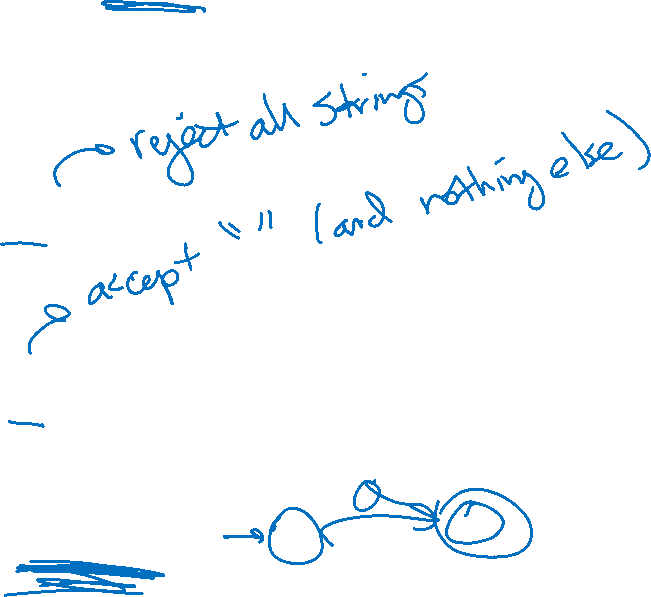 reject all strings
accept "" (and nothing else)